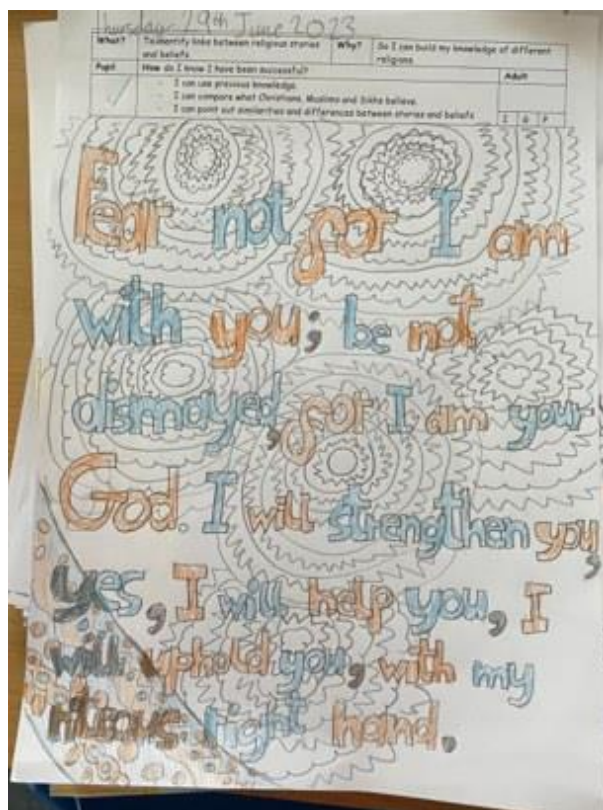 Thursday 29th June 2023
What? To identify links between religious stories and beliefs Why? So I can build my knowledge of different religions.
Pupil How do I know I have been successful? Adult
I can use previous knowledge.
I can compare what Christians, Muslims and Sikhs believe.
I can point out similarities and differences between stories and beliefs I G P
Fear not for I am
with you; be not
dismayed, for I am your
God. I will strengthen you,
yes, I will help you, I
will uphold you, with my
ritious right hand.